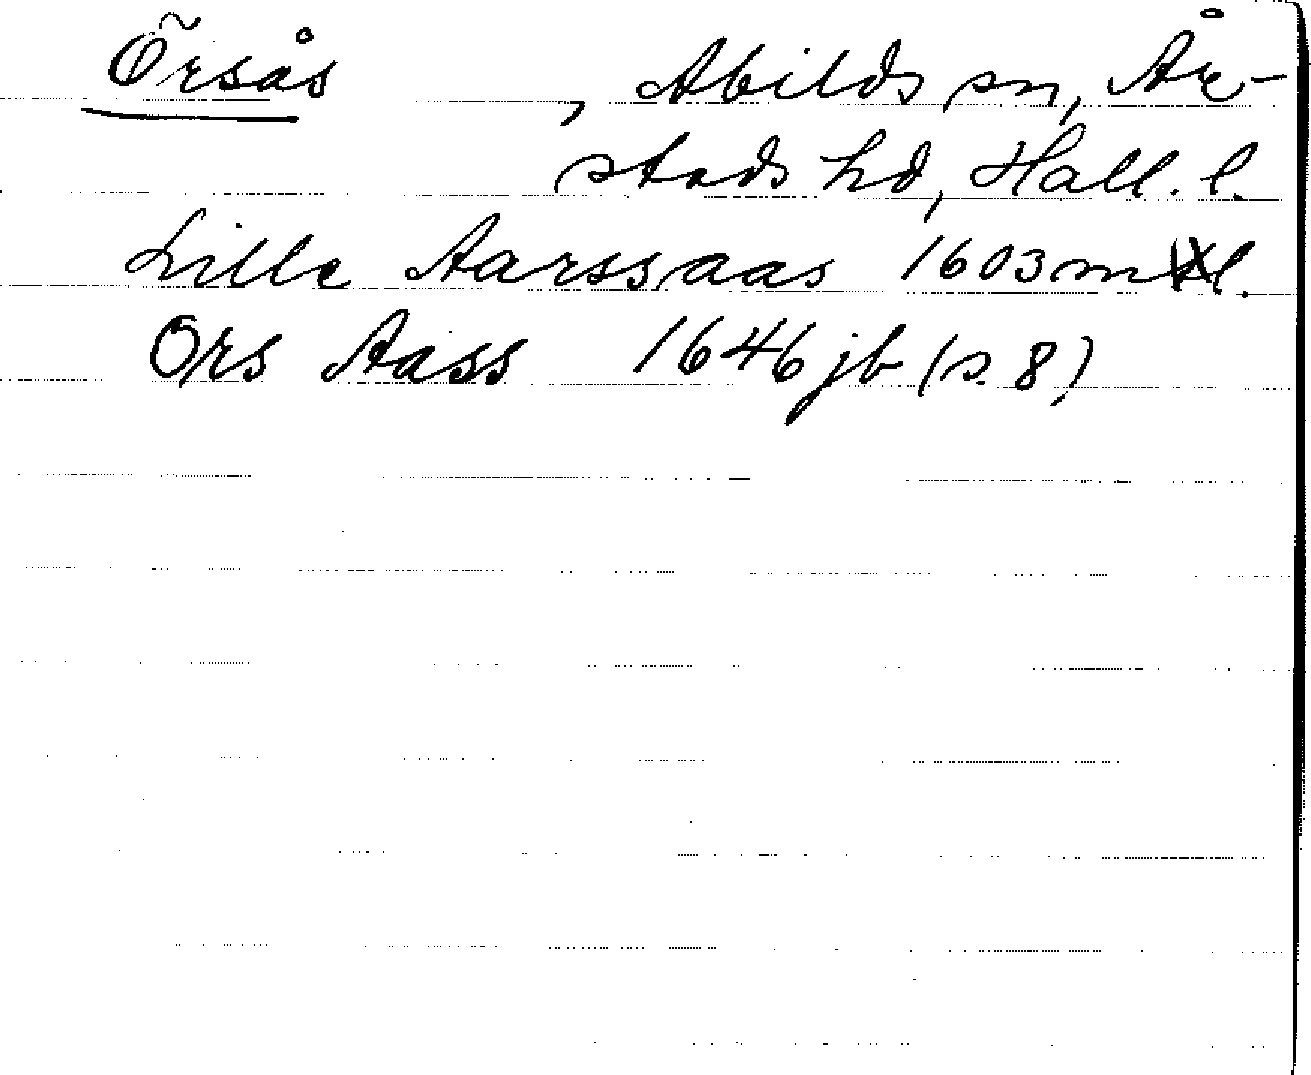 Örsås, Abilds sn, År-
stads hd, Hall. l.
Lille Aarssaas 1603 ml.
Ors Aass 1646 jb (s. 8)